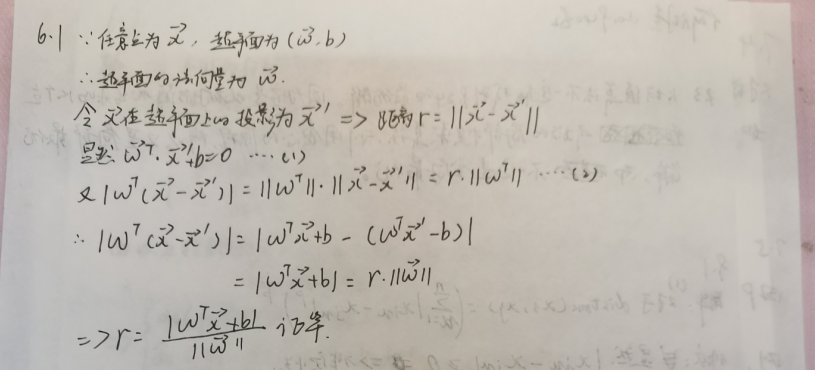 6.1 ∵任意点为 x⃗, 超平面为 (w⃗, b)
∴超平面的法向量为 w⃗.
令 x⃗ 在超平面上的投影为 x⃗' => 距离 r = ||x⃗ - x⃗'||
显然 w⃗ᵀ·x⃗'+b=0 ····(1)
又 |wᵀ(x⃗-x⃗')| = ||wᵀ||·||x⃗-x⃗'|| = r·||wᵀ|| ····(2)
∴ |wᵀ(x⃗-x⃗')| = |wᵀx⃗+b - (wᵀx⃗'-b)|
= |wᵀx⃗+b| = r·||w⃗||
=> r = |wᵀx⃗+b| / ||w⃗|| 证毕.